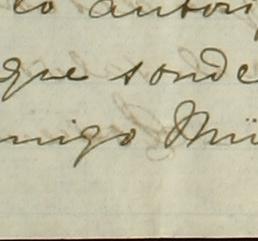 lo autori
que sonde
migo Mü